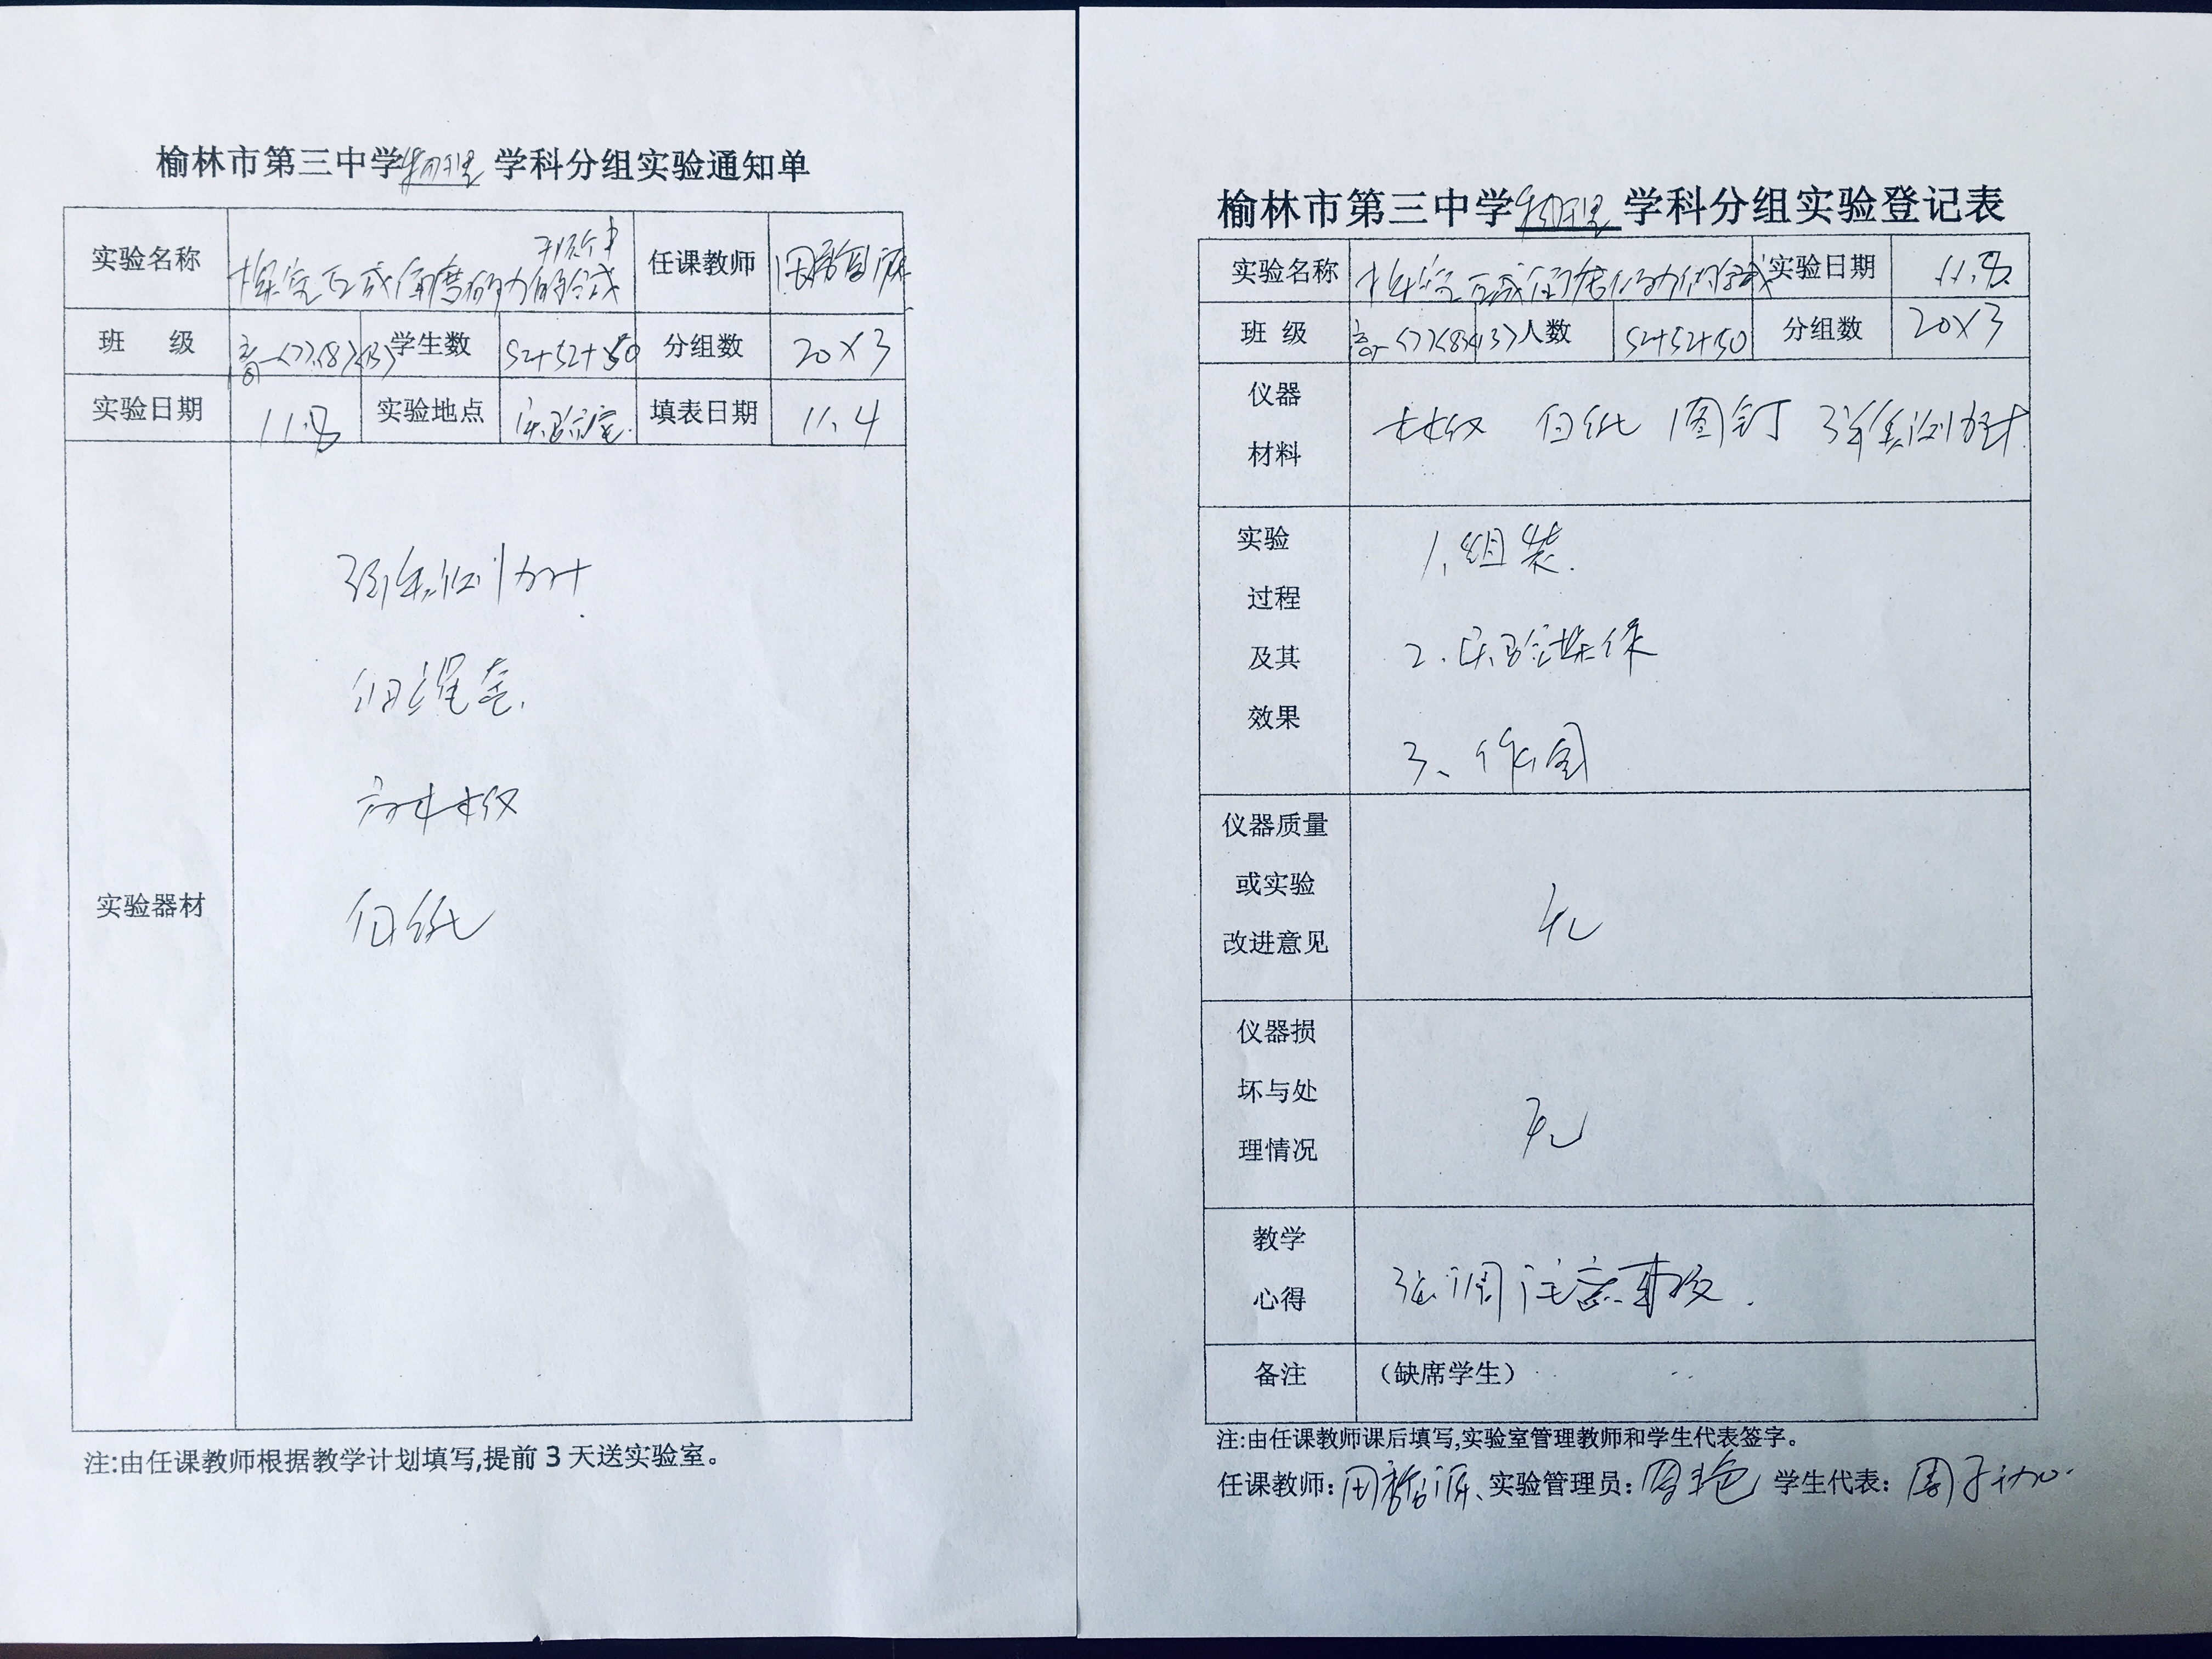 榆林市第三中学物理学科分组实验通知单
实验名称 探究互成角度的力的合成 任课教师
班 级 高一<7><8><13> 学生数 52+52+50 分组数 20×3
实验日期 11.8 实验地点 实验室 填表日期 11.4
实验器材
弹簧测力计
细绳套
方木板
白纸
注:由任课教师根据教学计划填写,提前3天送实验室。
榆林市第三中学物理学科分组实验登记表
实验名称 探究互成角度的力的合成 实验日期 11.8
班 级 高一<7><8><13> 人数 52+52+50 分组数 20×3
仪器
材料
木板 白纸 图钉 弹簧测力计
实验
过程
及其
效果
1、组装.
2.实验操作
3、作图
仪器质量
或实验
改进意见
无
仪器损
坏与处
理情况
无
教学
心得
强调注意事项.
备注 (缺席学生)
注:由任课教师课后填写,实验室管理教师和学生代表签字。
任课教师: 实验管理员: 学生代表: